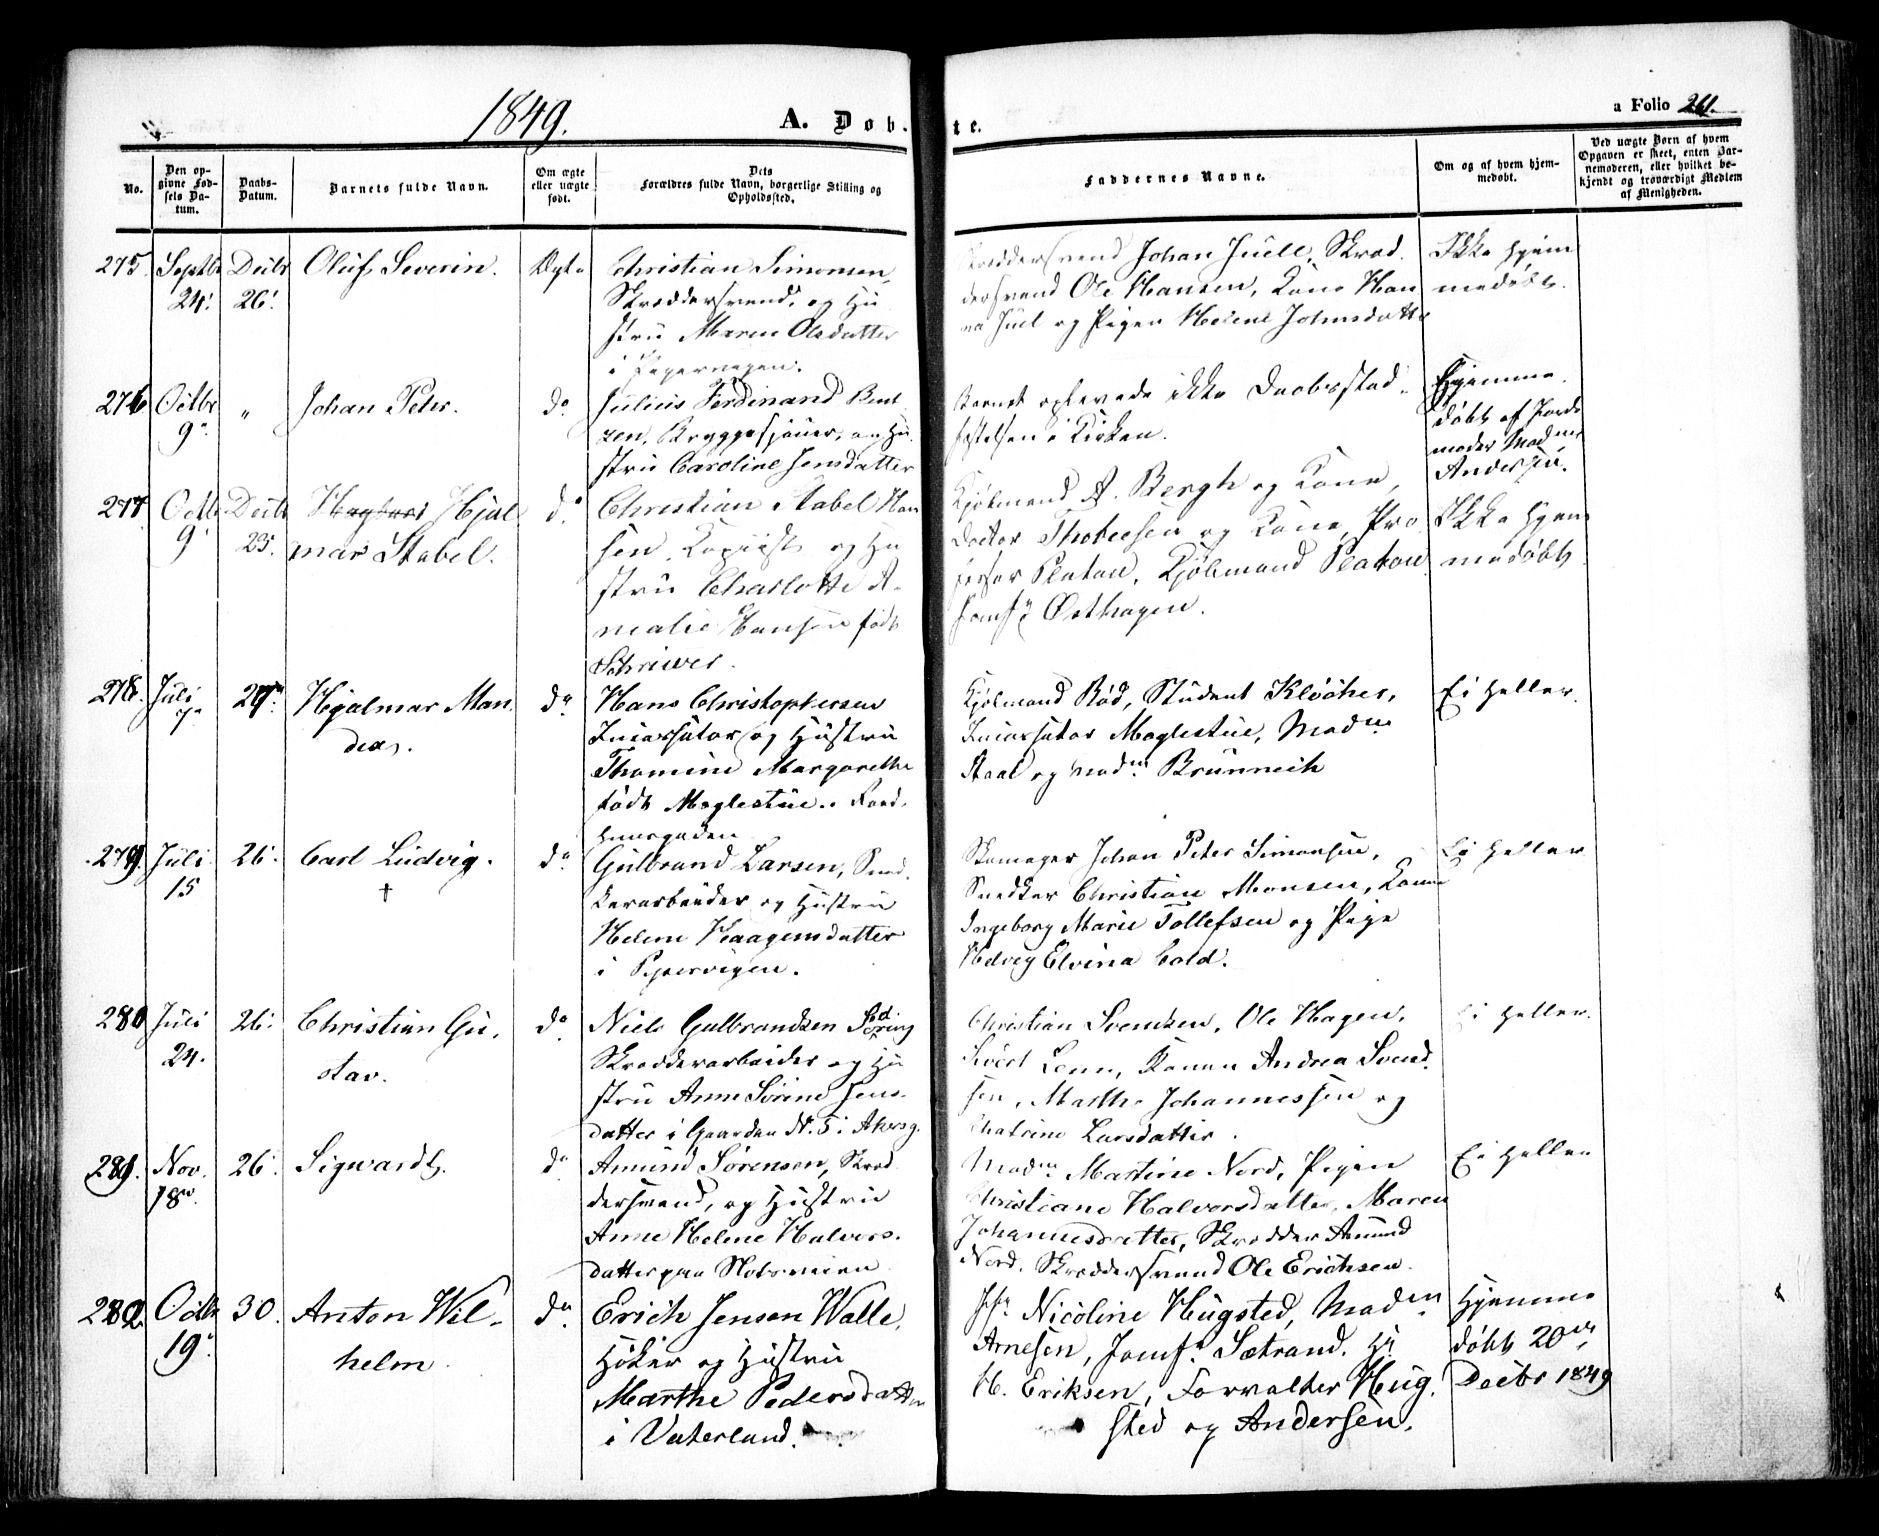 1849.
A. Døb-
te.
a Folio 261.
No.
Den op-
givne Fød-
sels Da-
tum.
Daabs-
Datum.
Barnets fulde Navn.
Om ægte
eller uægte
født.
Dets
Forældres fulde Navn, borgerlige Stilling og
Opholdssted.
Faddernes Navne.
Om og af hvem hjem-
medøbt.
Ved uægte Børn af hvem
Opgaven er skeet, enten Bar-
nemoderen, eller hvilket be-
kjendt og troværdigt Medlem
af Menigheden.
275. Septbr 24. Decbr 26. Oluf Severin. Ægte
Christian Simonsen
Skræddersvend, og Hu
stru Maren Olsdatter
i Pepervigen.
Skræddersvend Johan Juell, Skræd.
dersvend Ole Hansen, Kone Han
na Juel og Pigen Helene Johnsdatte
Ikke hjem
medøbt.
276 Octbr 9. " Johan Peter. do
Julius Ferdinand Bent
zen, Bryggesjouer, og Hu
stru Caroline Jensdatter
Barnet oplevede ikke Daabsstad
fæstelsen i Kirken.
Hjemme
døbt af Jorde
moder Mad me
Andersen.
277 Octbr 9 Decbr 25. Hjal
mar Stabel. do
Christian Stabel Han
sen, Kopiist og Hu
stru Charlotte A-
malie Hansen født
Schriwer.
Kjøbmand A. Bergh og Kone,
Doctor Thoresen og Kone, Pro
fessor Platou, Kjøbmand Platou
Jomf. Østhagen.
Ikke hjem
medøbt
278. Juli 7 29. Hjalmar Man
dea. do
Hans Christophersen
Incassator og Hustru
Thomine Margarethe
født Moglestue. Raad-
huusgaden
Kjøbmand Rød, Student Klöcker,
Incassator Moglestue, Madme
Staal og Madme Brünnich
Ei heller.
279. Juli 15 26. Carl Ludvig. † do
Gulbrand Larsen, Sned.
kerarbeider og Hustru
Helene Haagensdatter
i Pipervigen.
Skomager Johan Peter Simonsen,
Snedker Christian Monsen, Konen
Ingeborg Marie Tollefsen og Pige
Hedvig Elvina Cold.
Ei heller
280 Juli 24. 26. Christian Gu.
stav. do
Niels Gulbrandsen
Skrædderarbeider og Hu
stru Anne Sørine Jens-
datter i Gaarden N. 5 i Akersg.
Christian Svendsen, Ole Hagen,
Sivert Lenn, Konen Andrea Svend.
sen, Marthe Johannessen og
Chatrine Larsdatter.
Ei heller.
281. Nov. 18. 26. Sigwardt. do
Amund Sørensen, Skræd
dersvend, og Hustru
Anne Helene Halvors.
datter paa
Madme Martine Nord, Pigen
Christiane Halvorsdatter, Maren
Johannesdatter, Skrædder Amund
Nord, Skræddersvend Ole Erichsen.
Ei heller
282. Octbr 19. 30. Anton Wil-
helm. do
Erich Jensen Walle,
Høker og Hustru
Marthe Pedersdatter
i Vaterland.
Jfr. Nicoline Hugsted, Madme
Arnesen, Jomf. Sætrand. Hr
H. Eriksen, Forvalter Hug.
sted og Andersen.
Hjemme
døbt 20de
Decbr 1849